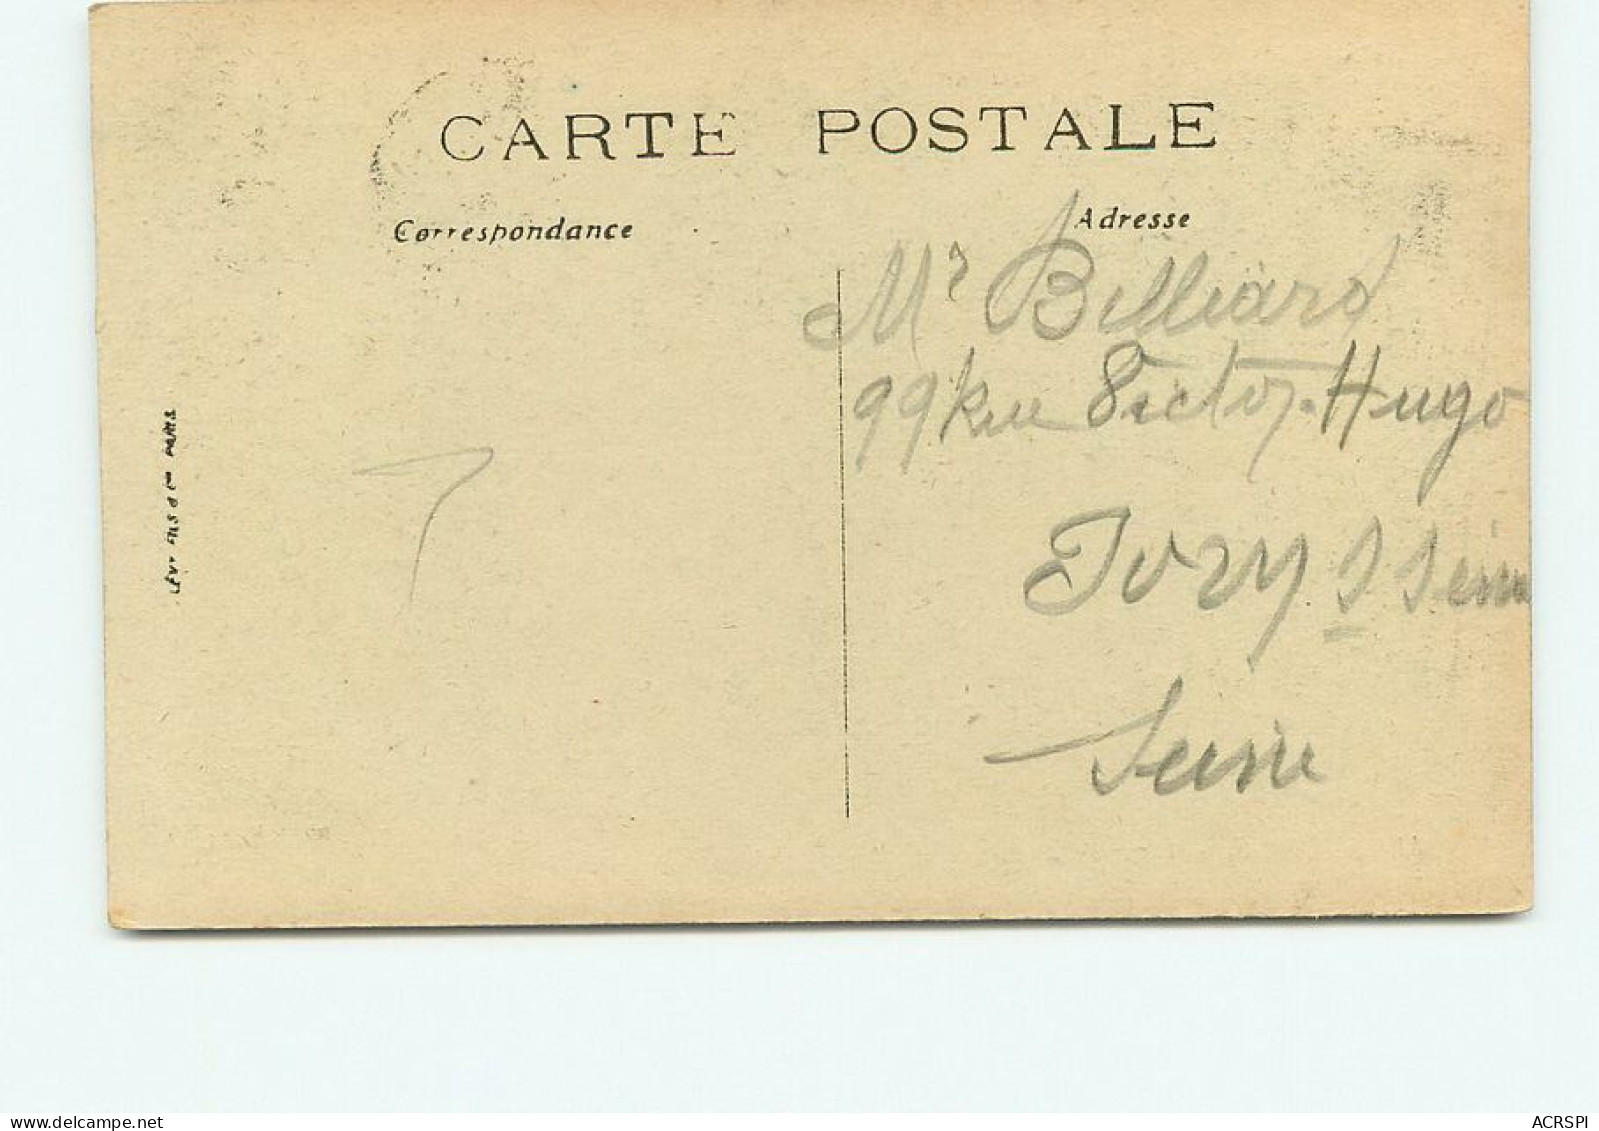 CARTE POSTALE
Correspondance
Adresse
Mr Billiard
99 Rue Victor-Hugo
Ivry s Seine
Seine
LÉVY FILS & Cie PARIS
www.delcampe.net
ACRSPI